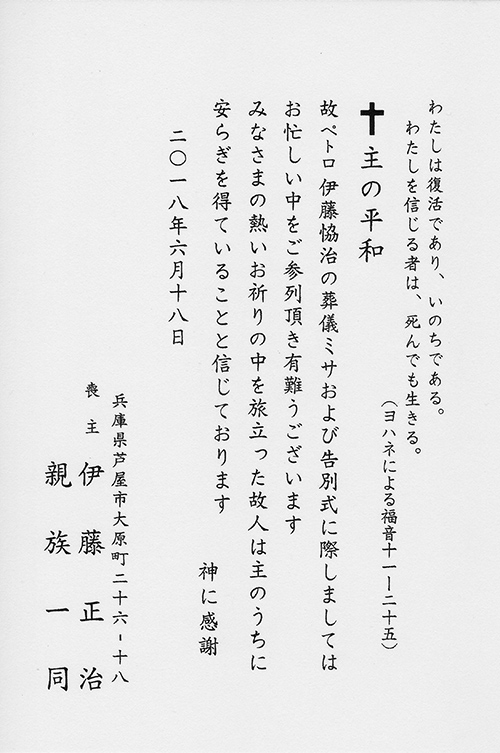 わたしは復活であり、いのちである。
わたしを信じる者は、死んでも生きる。
（ヨハネによる福音十一ー二十五）
✝主の平和
故ペトロ 伊藤恊治の葬儀ミサおよび告別式に際しましては
お忙しい中をご参列頂き有難うございます
みなさまの熱いお祈りの中を旅立った故人は主のうちに
安らぎを得ていることと信じております
神に感謝
二〇一八年六月十八日
兵庫県芦屋市大原町二十六-十八
喪主 伊藤正治
親族一同